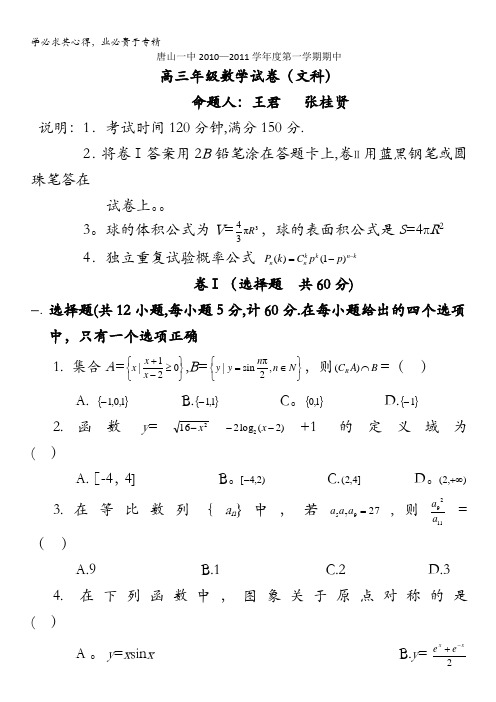 学必求其心得，业必贵于专精
唐山一中2010—2011学年度第一学期期中
高三年级数学试卷（文科）
命题人：王君 张桂贤
说明：1．考试时间120分钟,满分150分.
2．将卷Ⅰ答案用2B铅笔涂在答题卡上,卷Ⅱ用蓝黑钢笔或圆
珠笔答在
试卷上。。
3。球的体积公式为V=4/3 πR³，球的表面积公式是S=4πR²
4．独立重复试验概率公式 Pₙ(k)=Cₙᵏpᵏ(1−p)ⁿ⁻ᵏ
卷Ⅰ（选择题 共60分）
一. 选择题(共12小题,每小题5分,计60分.在每小题给出的四个选项
中，只有一个选项正确
1. 集合A={x|(x+1)/(x−2)≥0},B={y|y=sin nπ/2,n∈N}，则(C_R A)∩B=（ ）
A. {−1,0,1} B.{−1,1} C。{0,1} D.{−1}
2. 函数y=√(16−x²) −2log₂(x−2) +1的定义域为
( )
A.［-4，4］ B。[−4,2) C.(2,4] D。(2,+∞)
3. 在等比数列{aₙ}中，若a₅a₇a₉=27，则a₉²/a₁₁=
（ ）
A.9 B.1 C.2 D.3
4. 在下列函数中，图象关于原点对称的是
( )
A。y=xsinx B.y=(eˣ+e⁻ˣ)/2